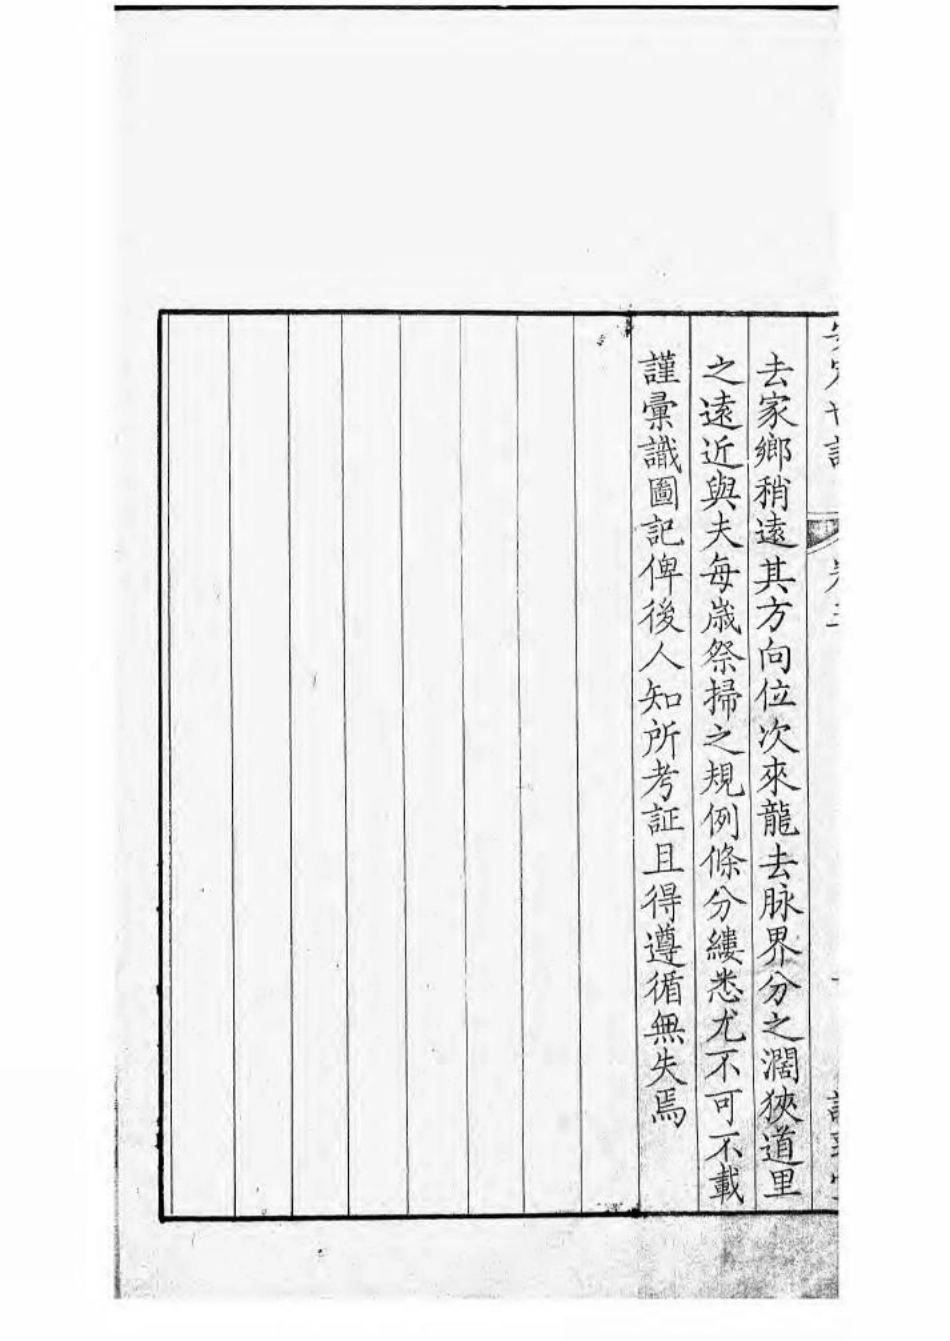 去家鄉稍遠其方向位次來龍去脉界分之濶狹道里
之遠近與夫每歲祭掃之規例條分縷悉尤不可不載
謹彙識圖記俾後人知所考証且得遵循無失焉